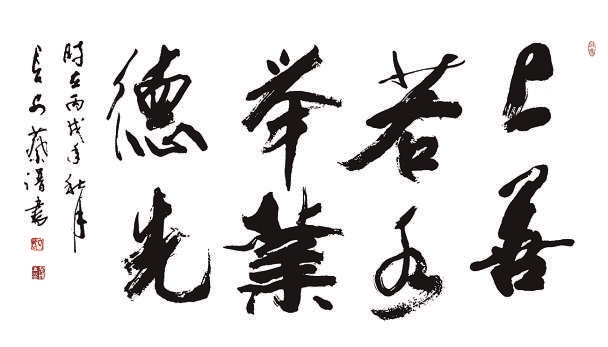 上善
若水
举业
德先
時在丙戌年秋月
长安蔡谞書